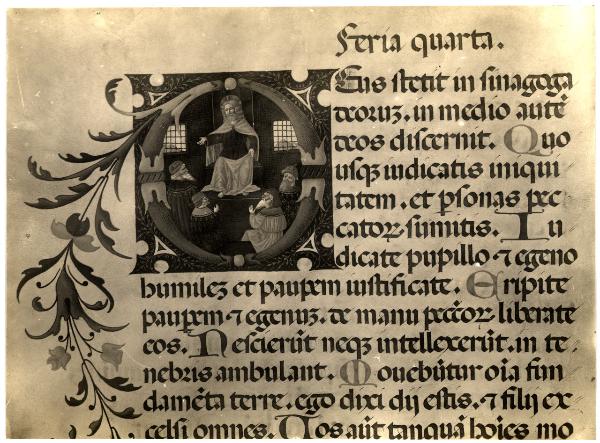 Feria quarta.
Eus stetit in sinagoga
deoruꝫ. in medio autē
deos discernit. Quo
usqꝫ iudicatis iniqui
tatem. et ꝑsonas pec
catoꝝ sumitis. Iu
dicate pupillo ⁊ egeno
humileꝫ et pauꝑem iustificate. Eripite
pauꝑem ⁊ egenuꝫ. de manu pecc̄oꝝ liberate
eos. Nescierūt neqꝫ intellexerūt. in te
nebris ambulant. Mouebūtur oīa fun
damēta terre. ego dixi dij estis. ⁊ filij ex
celsi omnes. Uos aūt tanquā hoīes mo